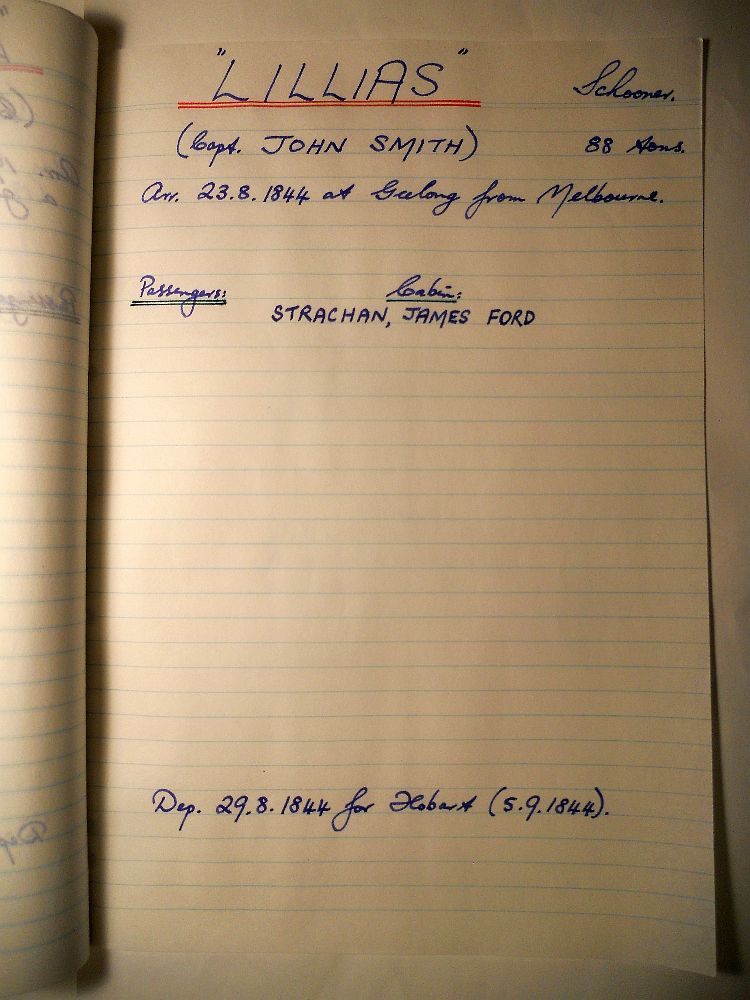 "LILLIAS" Schooner.
(Capt. JOHN SMITH) 88 tons.
Arr. 23.8.1844 at Geelong from Melbourne.
Passengers: Cabin:
STRACHAN, JAMES FORD
Dep. 29.8.1844 for Hobart (5.9.1844).